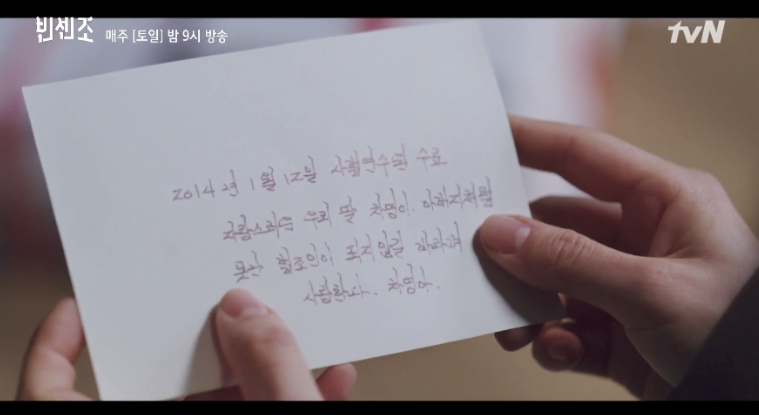 빈센조 매주 [토일] 밤 9시 방송 tvN
2014년 1월 12일 사법연수원 수료
자랑스러운 우리 딸 차영이. 아빠처럼
못난 법조인이 되지 않길 바라며
사랑한다. 차영아.